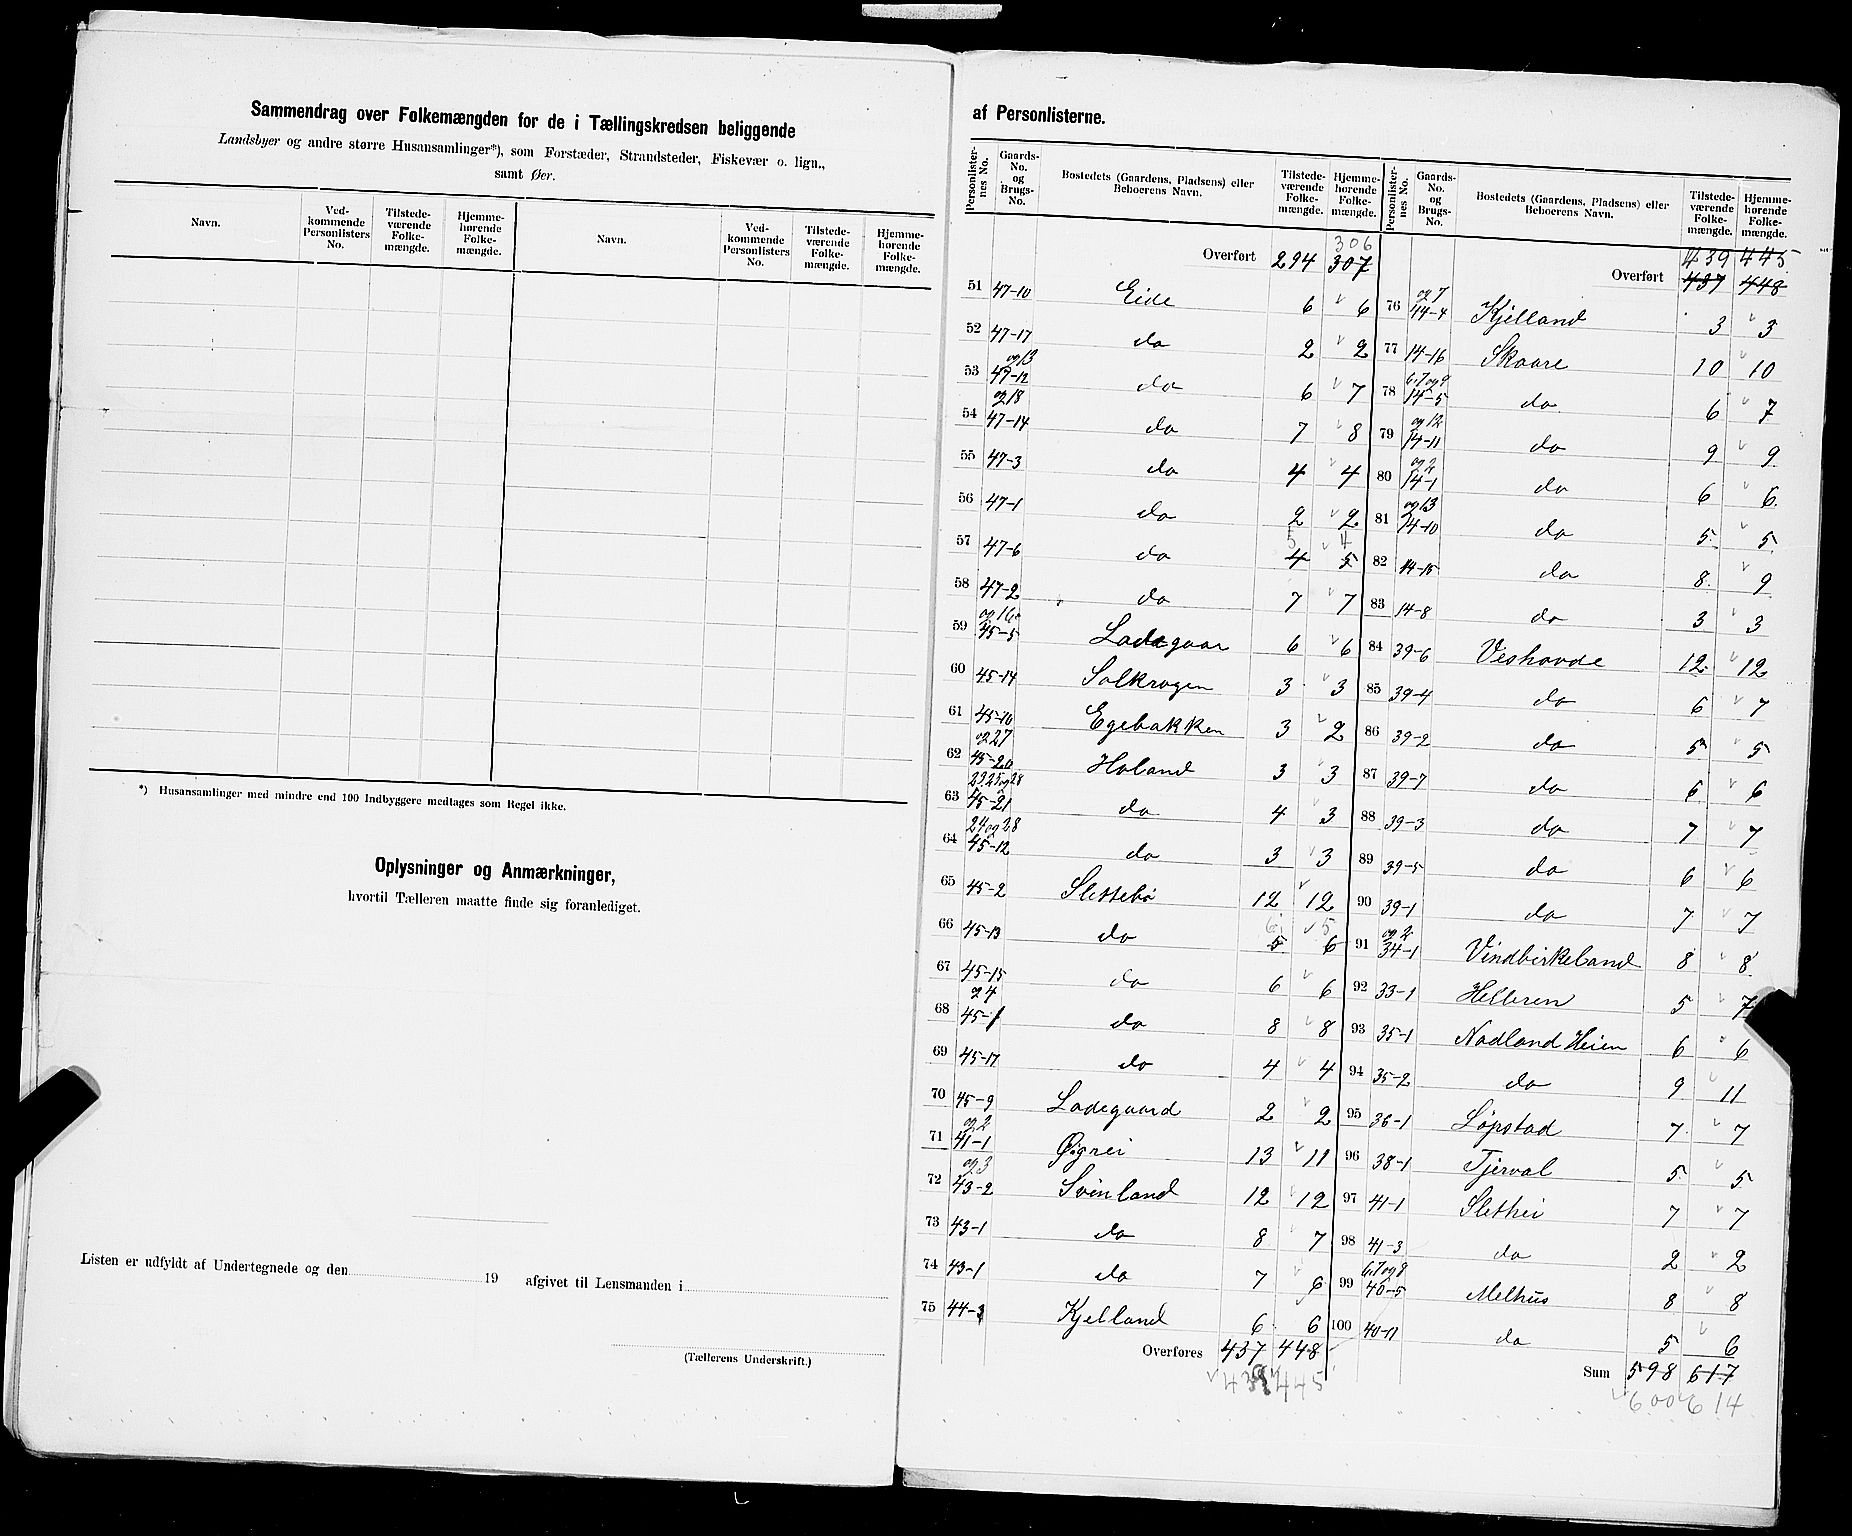 Sammendrag over Folkemængden for de i Tællingskredsen beliggende
Landsbyer og andre større Husansamlinger*), som Forstæder, Strandsteder, Fiskevær o. lign.,
samt Øer.
Navn. Ved-kommende Personlisters No. Tilstede-værende Folke-mængde. Hjemme-hørende Folke-mængde. Navn. Ved-kommende Personlisters No. Tilstede-værende Folke-mængde. Hjemme-hørende Folke-mængde.
*) Husansamlinger med mindre end 100 Indbyggere medtages som Regel ikke.
Oplysninger og Anmærkninger,
hvortil Tælleren maatte finde sig foranlediget.
Listen er udfyldt af Undertegnede og den 19 afgivet til Lensmanden i
(Tællerens Underskrift.)
af Personlisterne.
Personlister-nes No. Gaards-No. og Brugs-No. Bostedets (Gaardens, Pladsens) eller Beboerens Navn. Tilstede-værende Folke-mængde. Hjemme-hørende Folke-mængde.
306
Overført 294 307
51 47-10 Eide 6 6
52 47-17 do 2 2
og 13
53 47-12 do 6 7
og 18
54 47-14 do 7 8
55 47-3 do 4 4
56 47-1 do 2 2
5 4
57 47-6 do 4 5
58 47-2 do 7 7
og 16
59 45-5 Ladegaar 6 6
60 45-14 Solkrogen 3 3
61 45-10 Egebakken 3 2
og 27
62 45-20 Holand 3 3
23 25 og 28
63 45-21 do 4 3
24 og 28
64 45-12 do 3 3
65 45-2 Slettebø 12 12
6 5
66 45-13 do 5 6
67 45-15 do 6 6
og 4
68 45-1 do 8 8
69 45-17 do 4 4
70 45-9 Ladegaard 2 2
og 2
71 41-1 Øigrei 13 11
og 3
72 43-2 Svinland 12 12
73 43-1 do 8 7
74 43-1 do 7 6
75 44-3 Kjelland 6 6
Overføres 437 448
439 445
Personlister-nes No. Gaards-No. og Brugs-No. Bostedets (Gaardens, Pladsens) eller Beboerens Navn. Tilstede-værende Folke-mængde. Hjemme-hørende Folke-mængde.
439 445
Overført 437 448
og 7
76 44-4 Kjelland 3 3
77 14-16 Skaare 10 10
6, 7 og 9
78 14-5 do 6 7
og 12
79 14-11 do 9 9
og 2
80 14-1 do 6 6
og 13
81 14-10 do 5 5
82 14-15 do 8 9
83 14-8 do 3 3
84 39-6 Veshovde 12 12
85 39-4 do 6 7
86 39-2 do 5 5
87 39-7 do 6 6
88 39-3 do 7 7
89 39-5 do 6 6
90 39-1 do 7 7
og 2
91 34-1 Vindbirkeland 8 8
92 33-1 Helleren 5 7
93 35-1 Nodland Heien 6 6
94 35-2 do 9 11
95 36-1 Løpstad 7 7
96 38-1 Tjerval 5 5
97 41-1 Slethei 7 7
98 41-3 do 2 2
6, 7 og 8
99 40-5 Melhus 8 8
100 40-11 do 5 6
Sum 598 617
600 614